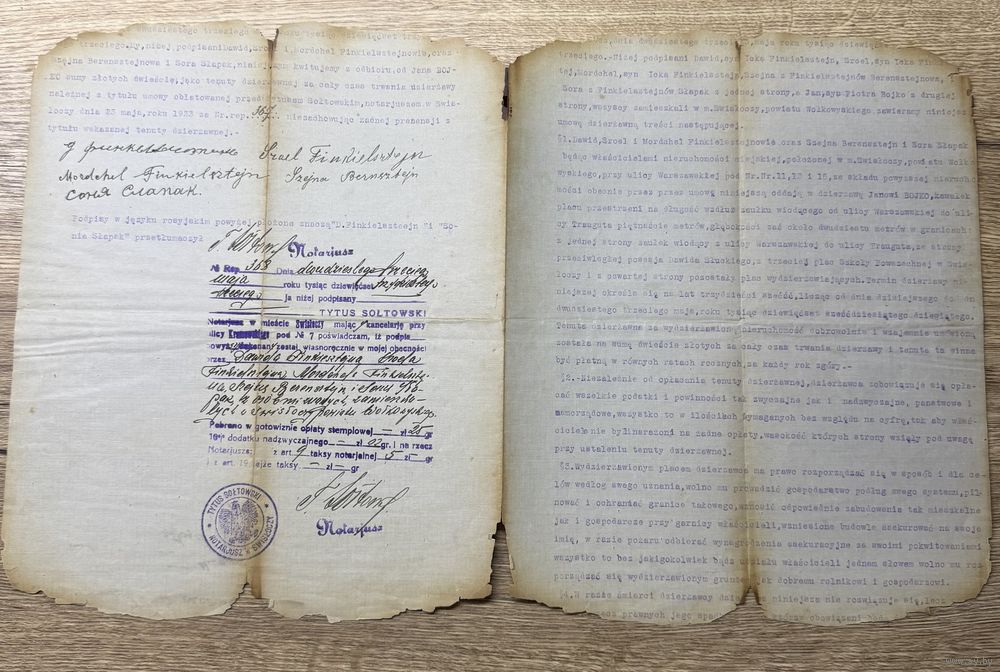 trzeciego.My,niżej podpisani Dawid,Sroel i,Mordchel Finkielsztejnowie,oraz
Szejna Berensztejnowa i Sora Słapak,niniejszym kwitujemy z odbioru,od Jana BOJ-
KO sumy złotych dwieście,jako tenuty dzierżawnej za cały czas trwania dzierżawy
należnej z tytułu umowy oblatowanej przed Tytusem Sołtowskim,notarjuszem w Świs-
łoczy dnia 23 maja,roku 1933 za Nr.rep. 367. niezachowując żadnej pretensji z
tytułu wskazanej tenuty dzierżawnej.
Srael Finkielsztejn
Mordchel Finkielsztejn Szejna Bernsztejn
Соня Слапак.
Podpisy w języku rosyjskim powyżej położone znaczą"D.Finkielsztejn "i "So-
nia Słapak" przetłumaczył
Notarjusz
№ Rep. 368 Dnia dwudziestego trzeciego
maja roku tysiąc dziewięćset trzydziestego
trzeciego ja niżej podpisany
TYTUS SOŁTOWSKI
Notarjusz w mieście Świsłoczy mając kancelarję przy
ulicy pod № 7 poświadczam, iż podpis
został własnoręcznie w mojej obecności
przez Dawida Finkielsztejna, Sroela
Finkielsztejna, Mordchela Finkielsztej-
na, Szejnę Berensztejn i Sorę Sła-
pak,
w Świsłoczy powiatu Wołkowyskiego.
Pobrano w gotowiźnie opłaty stemplowej — zł 25 gr
10% dodatku nadzwyczajnego — zł 02 gr. i na rzecz
Notarjusza: z art. 9 taksy notarjalnej 5 zł — gr
i z art. 19 tejże taksy — zł — gr
TYTUS SOŁTOWSKI
NOTARJUSZ w ŚWISŁOCZY
Notarjusz
trzeciego.-Niżej podpisani Dawid,syn Icka Finkielsztejn, Sroel,syn Icka Fin
tej,Mordchel,syn Icka Finkielsztejn,Szejna z Finkielsztejnów Berensztejnowa,
Sora z Finkielsztejnów Słapak z jednej strony,a Jan,syn Piotra Bojko z drugiej
strony,wszyscy zamieszkali w m.Świsłoczy,powiatu Wołkowyskiego zawarliśmy niniejszą
umowę dzierżawną treści następującej.
§1.Dawid,Sroel i Mordchel Finkielsztejnowie oraz Szejna Berensztejn i Sora Słapak
będąc właścicielami nieruchomości miejskiej,położonej w m.Świsłoczy,powiatu Wołko
wyskiego,przy ulicy Warszawskiej pod Nr.Nr.11,13 i 15,ze składu powyższej nieruch
ności obecnie przez przez umowę niniejszą oddają w dzierżawę Janowi BOJKO,kawałek
placu przestrzeni na długość wzdłuż zaułku wiodącego od ulicy Warszawskiej do uli
cy Traugutta piętnaście metrów,głębokości zaś około dwudziestu metrów w granicach:
z jednej strony zaułek wiodący z ulicy Warszawskiej do ulicy Trauguta,ze strony
przeciwległej posesja Dawida Słuckiego, z trzeciej plac Szkoły Powszechnej w Świs
łoczy i z czwartej strony pozostały plan wydzierżawiających.Termin dzierżawy ni-
niejszej określa się na lat trzydzieści sześć,licząc od dnia dzisiejszego do dn
dwudziestego trzeciego maja,roku tysiąc dziewięćset sześćdziesiątego dziewiątego.
Tenuta dzierżawna za wydzierżawioną nieruchomość dobrowolnie i wzajemnie
została na sumę dwieście złotych za cały czas trwania dzierżawy i tenuta ta winna
być płatną w równych ratach rocznych,za każdy rok zgóry.-
§2.-Niezależnie od opłacania tenuty dzierżawnej,dzierżawca zobowiązuje się opła-
cać wszelkie podatki i powinności tak zwyczajne jak i nadzwyczajne, państwowe i
samorządowe,wszystko to w ilościach wymaganych bez względu na cyfrę,toż aby właś-
ciciele nie byli narażoni na żadne opłaty,wysokość których strony wzięły pod uwagę
przy ustaleniu tenuty dzierżawnej.
§3.Wydzierżawionym placem dzierżawca ma prawo rozporządzać się w sposób i dla ce-
lów według swego uznania,wolno mu prowadzić gospodarstwo podług swego systemu,pil
nować i ochraniać granice takowego,wznosić odpowiednie zabudowania tak mieszkalne
jak i gospodarcze przy granicy właścicieli,wzniesione budowle asekurować na swoje
imię, w razie pożaru odbierać wynagrodzenia asekuracyjne za swoimi pokwitowaniami
wszystko to bez jakiegokolwiek bądź udziału właścicieli jednem słowem wolno mu roz
porządzać się wydzierżawionym gruntem jak dobremu rolnikowi i gospodarzowi.
§4.W razie śmierci dzierżawcy dzierżawa niniejsza nie rozwiązuje się,lecz
prawnych jego